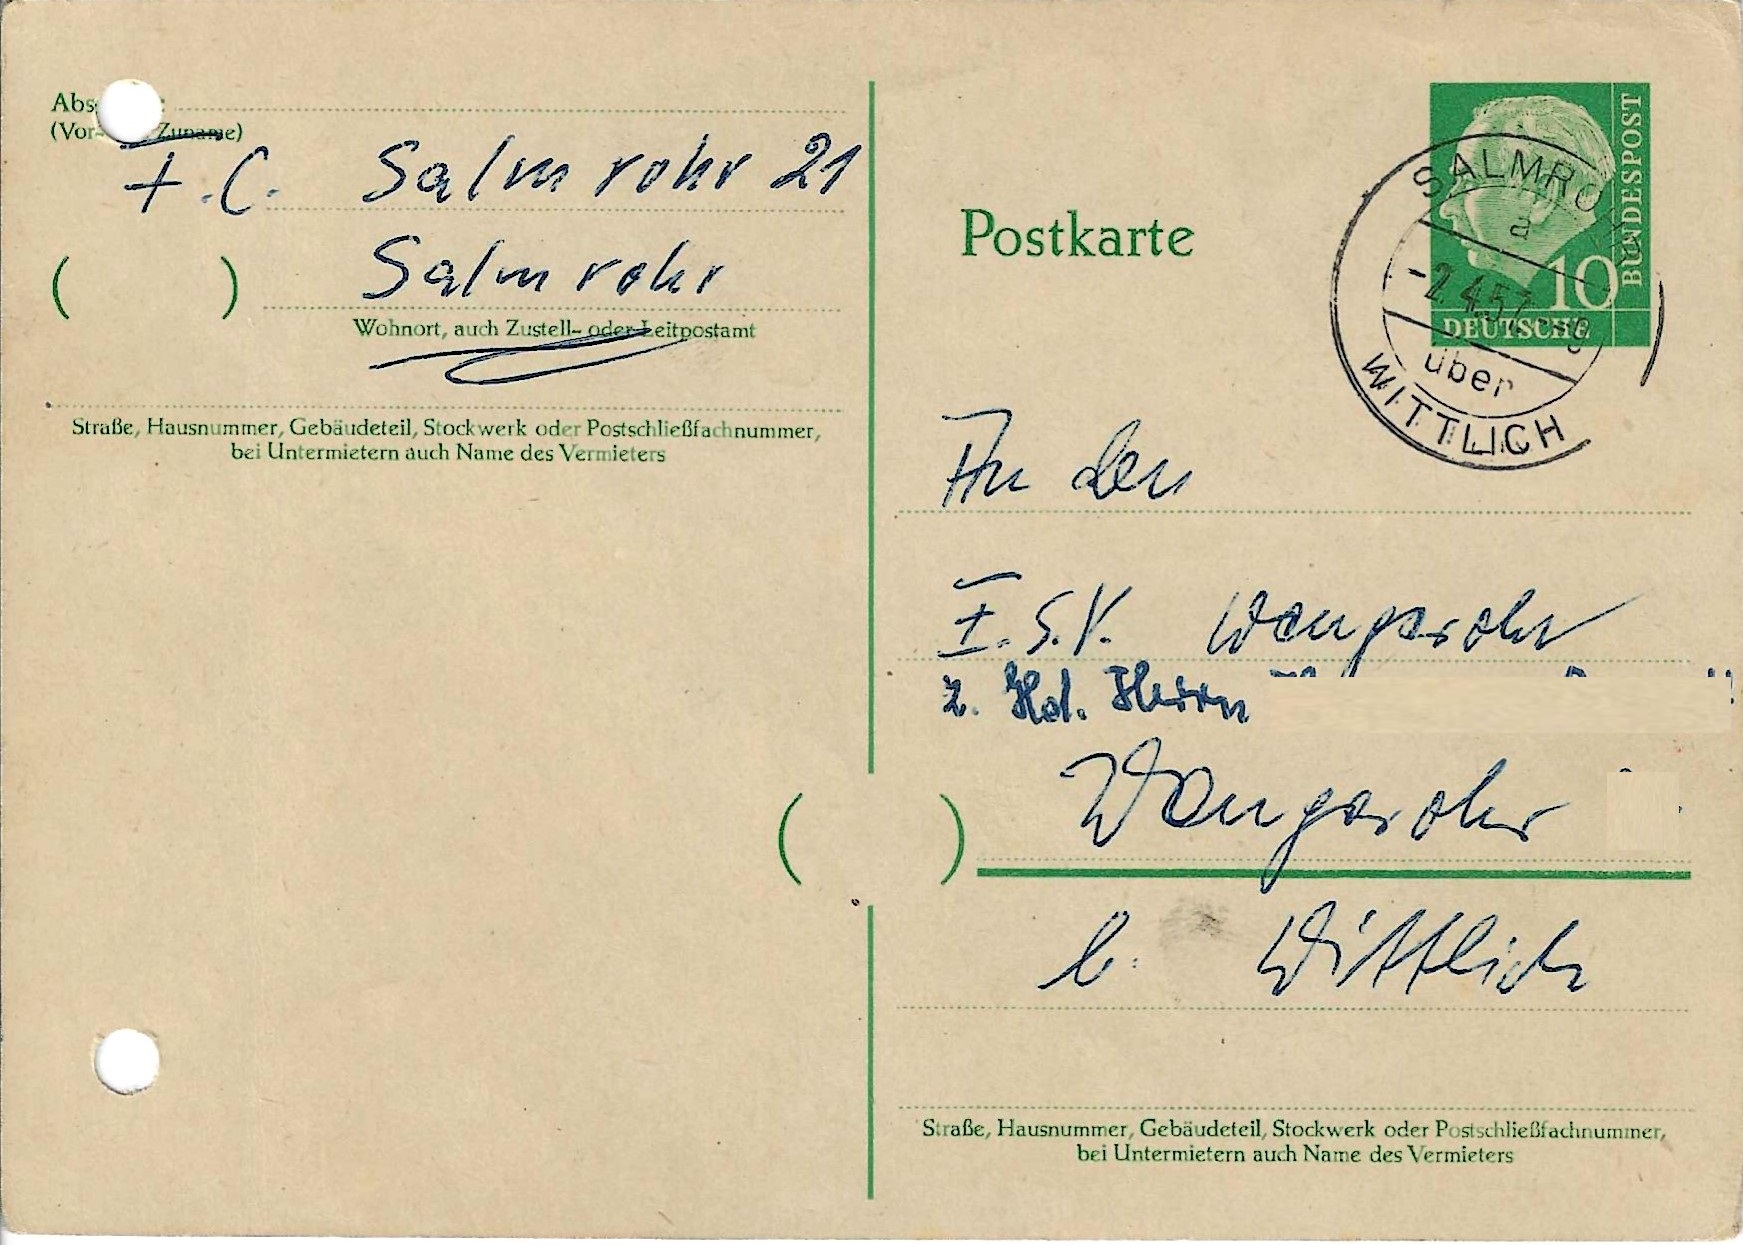 (Vor- Zuname)
F.C. Salmrohr 21
Salmrohr
Wohnort, auch Zustell- oder Leitpostamt
Straße, Hausnummer, Gebäudeteil, Stockwerk oder Postschließfachnummer,
bei Untermietern auch Name des Vermieters
Postkarte
DEUTSCHE
BUNDESPOST
10
SALMROHR
a
-2.4.57
über
WITTLICH
An den
F.S.V. Wengerohr
z. Hd. Herrn
Wengerohr
b. Wittlich
Straße, Hausnummer, Gebäudeteil, Stockwerk oder Postschließfachnummer,
bei Untermietern auch Name des Vermieters